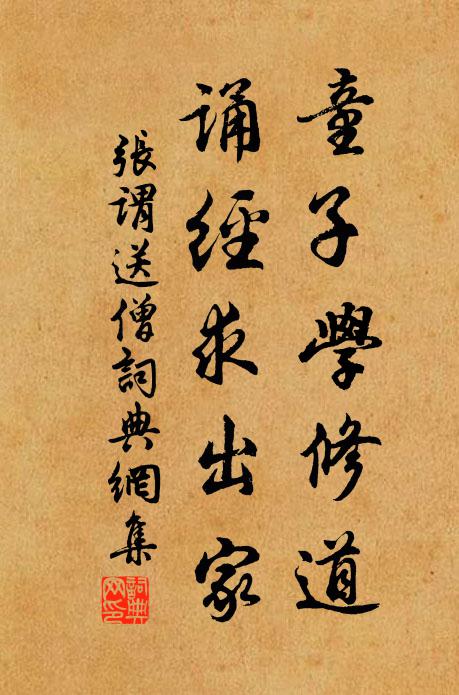 童子學修道
誦經求出家
張謂送僧詞典網集
詞典網印